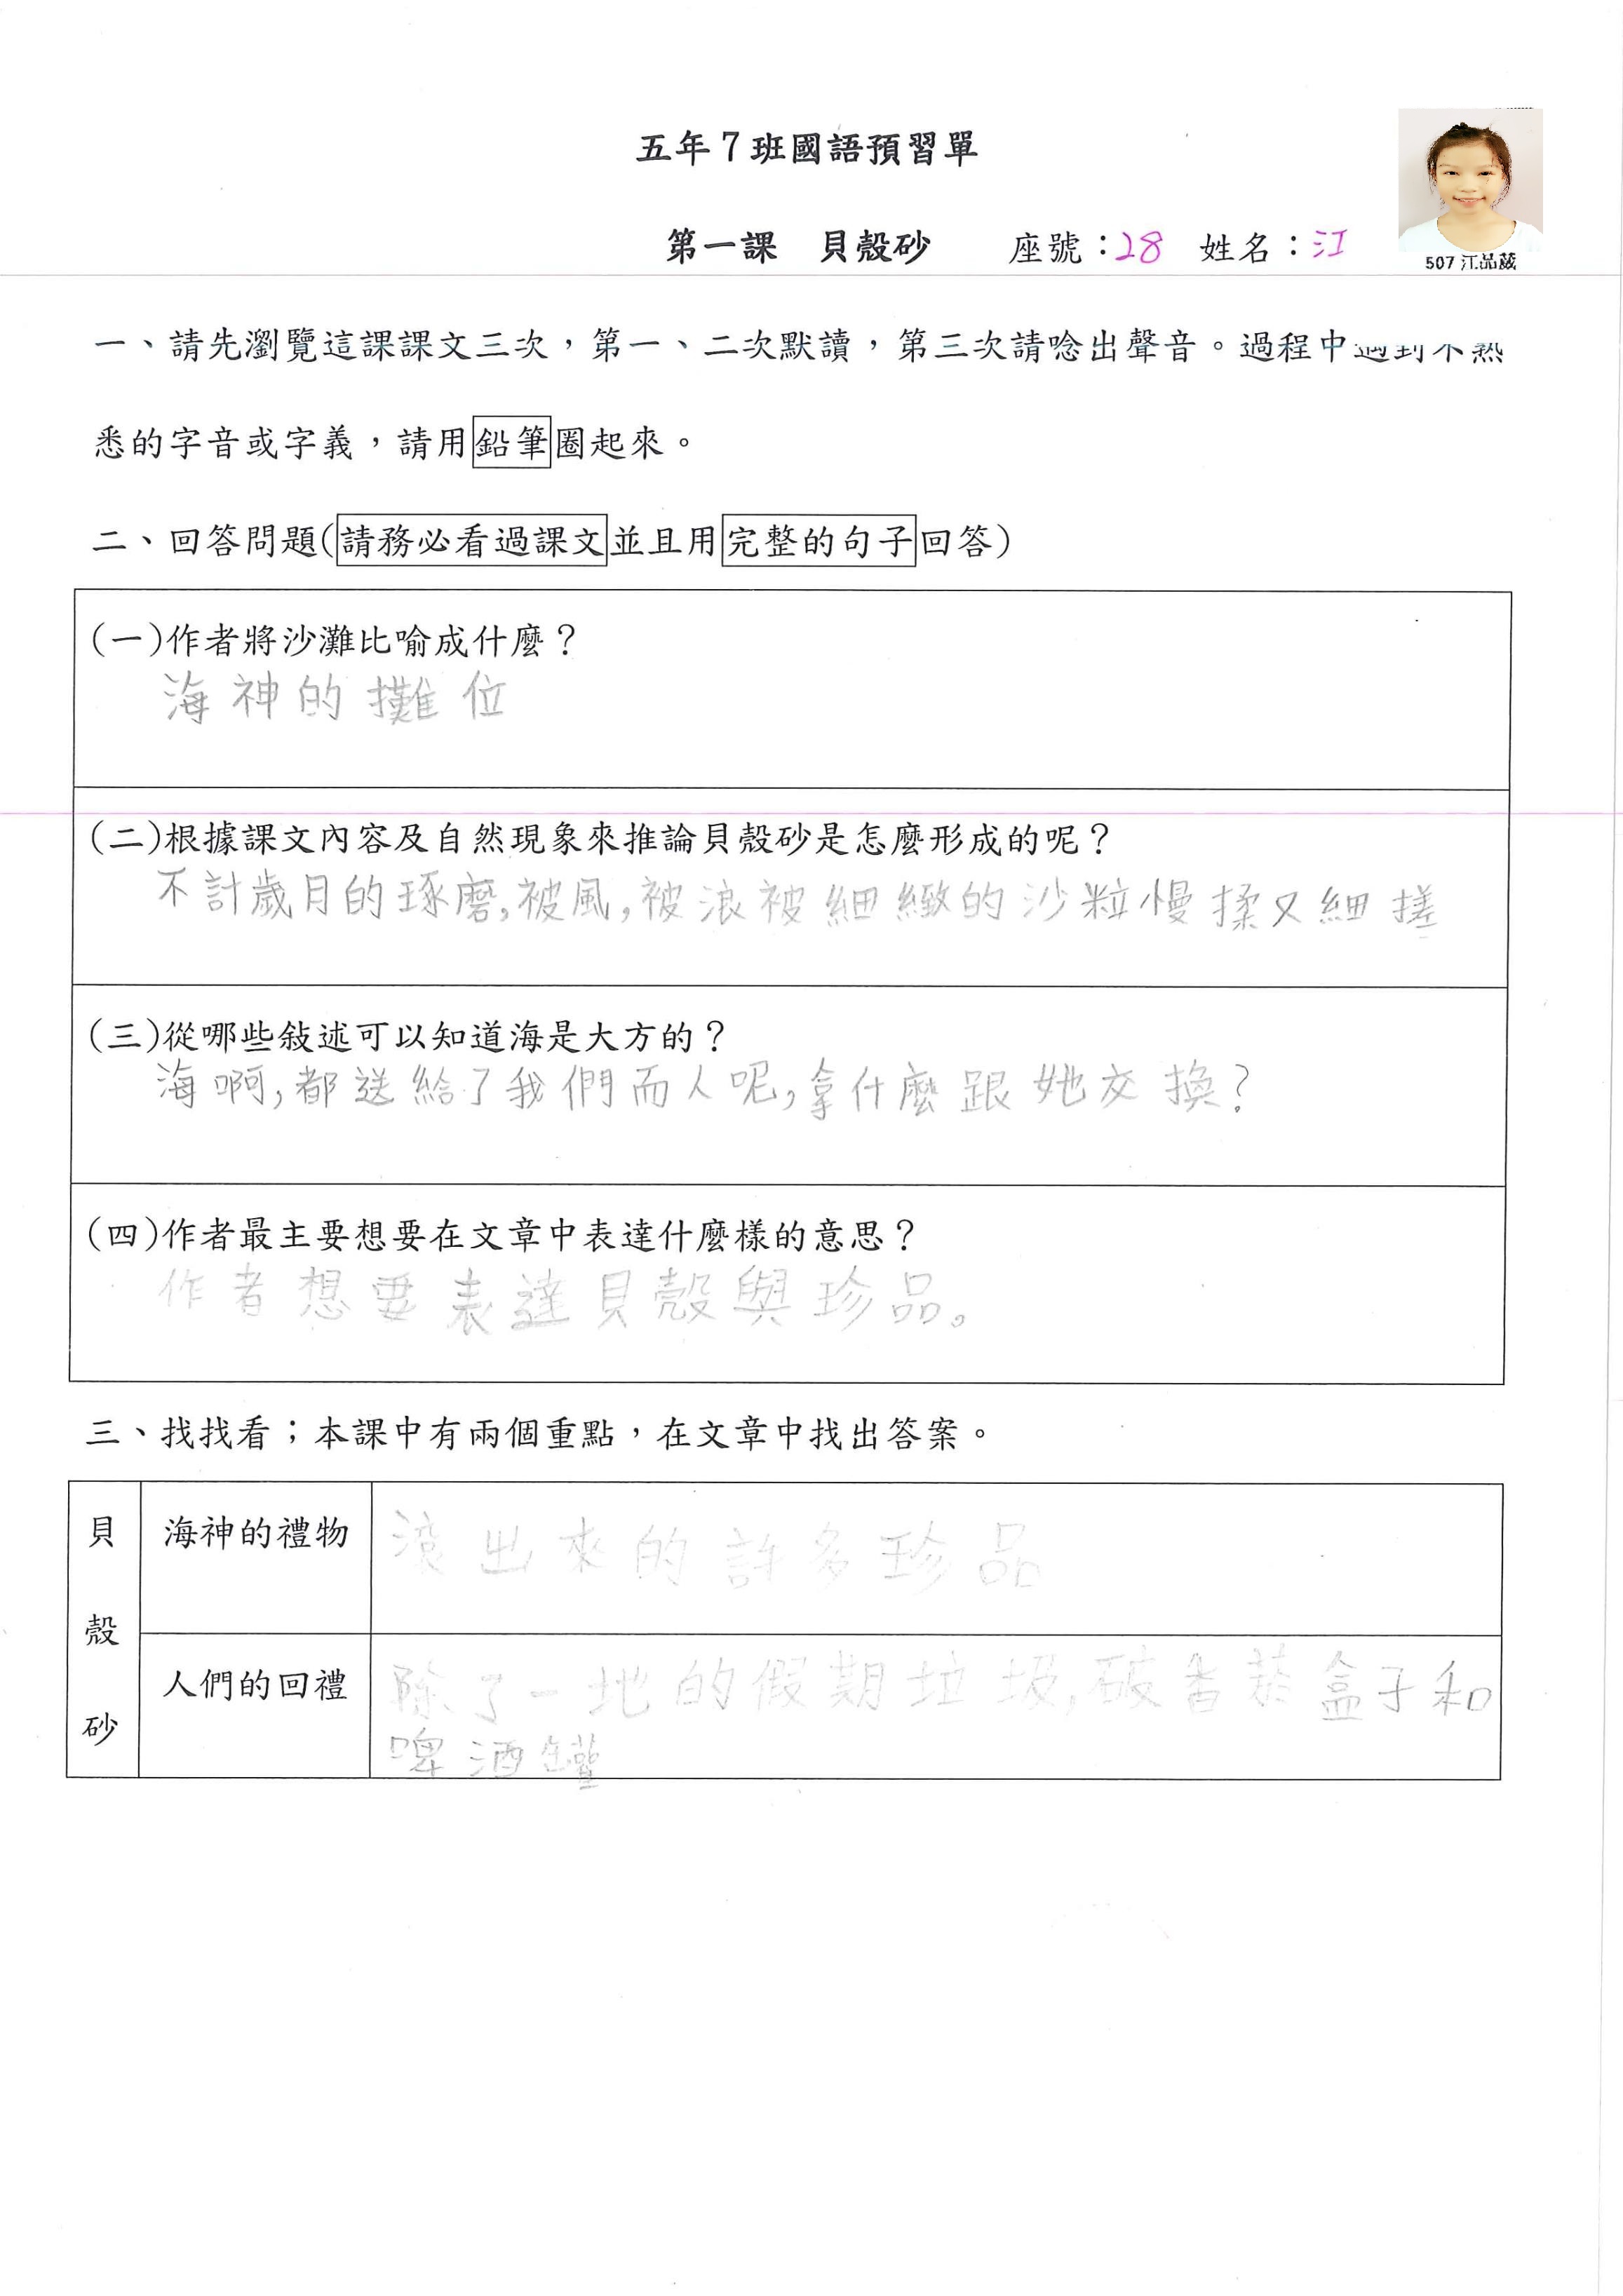 五年7班國語預習單
第一課 貝殼砂 座號：28 姓名：江
507 江品葳
一、請先瀏覽這課課文三次，第一、二次默讀，第三次請唸出聲音。過程中遇到不熟
悉的字音或字義，請用鉛筆圈起來。
二、回答問題(請務必看過課文並且用完整的句子回答)
(一)作者將沙灘比喻成什麼？
海神的攤位
(二)根據課文內容及自然現象來推論貝殼砂是怎麼形成的呢？
不計歲月的琢磨,被風,被浪被細緻的沙粒慢揉又細搓
(三)從哪些敍述可以知道海是大方的？
海啊,都送給了我們而人呢,拿什麼跟她交換?
(四)作者最主要想要在文章中表達什麼樣的意思？
作者想要表達貝殼與珍品。
三、找找看；本課中有兩個重點，在文章中找出答案。
貝殼砂
海神的禮物
滾出來的許多珍品
人們的回禮
除了一地的假期垃圾,破香菸盒子和
啤酒罐